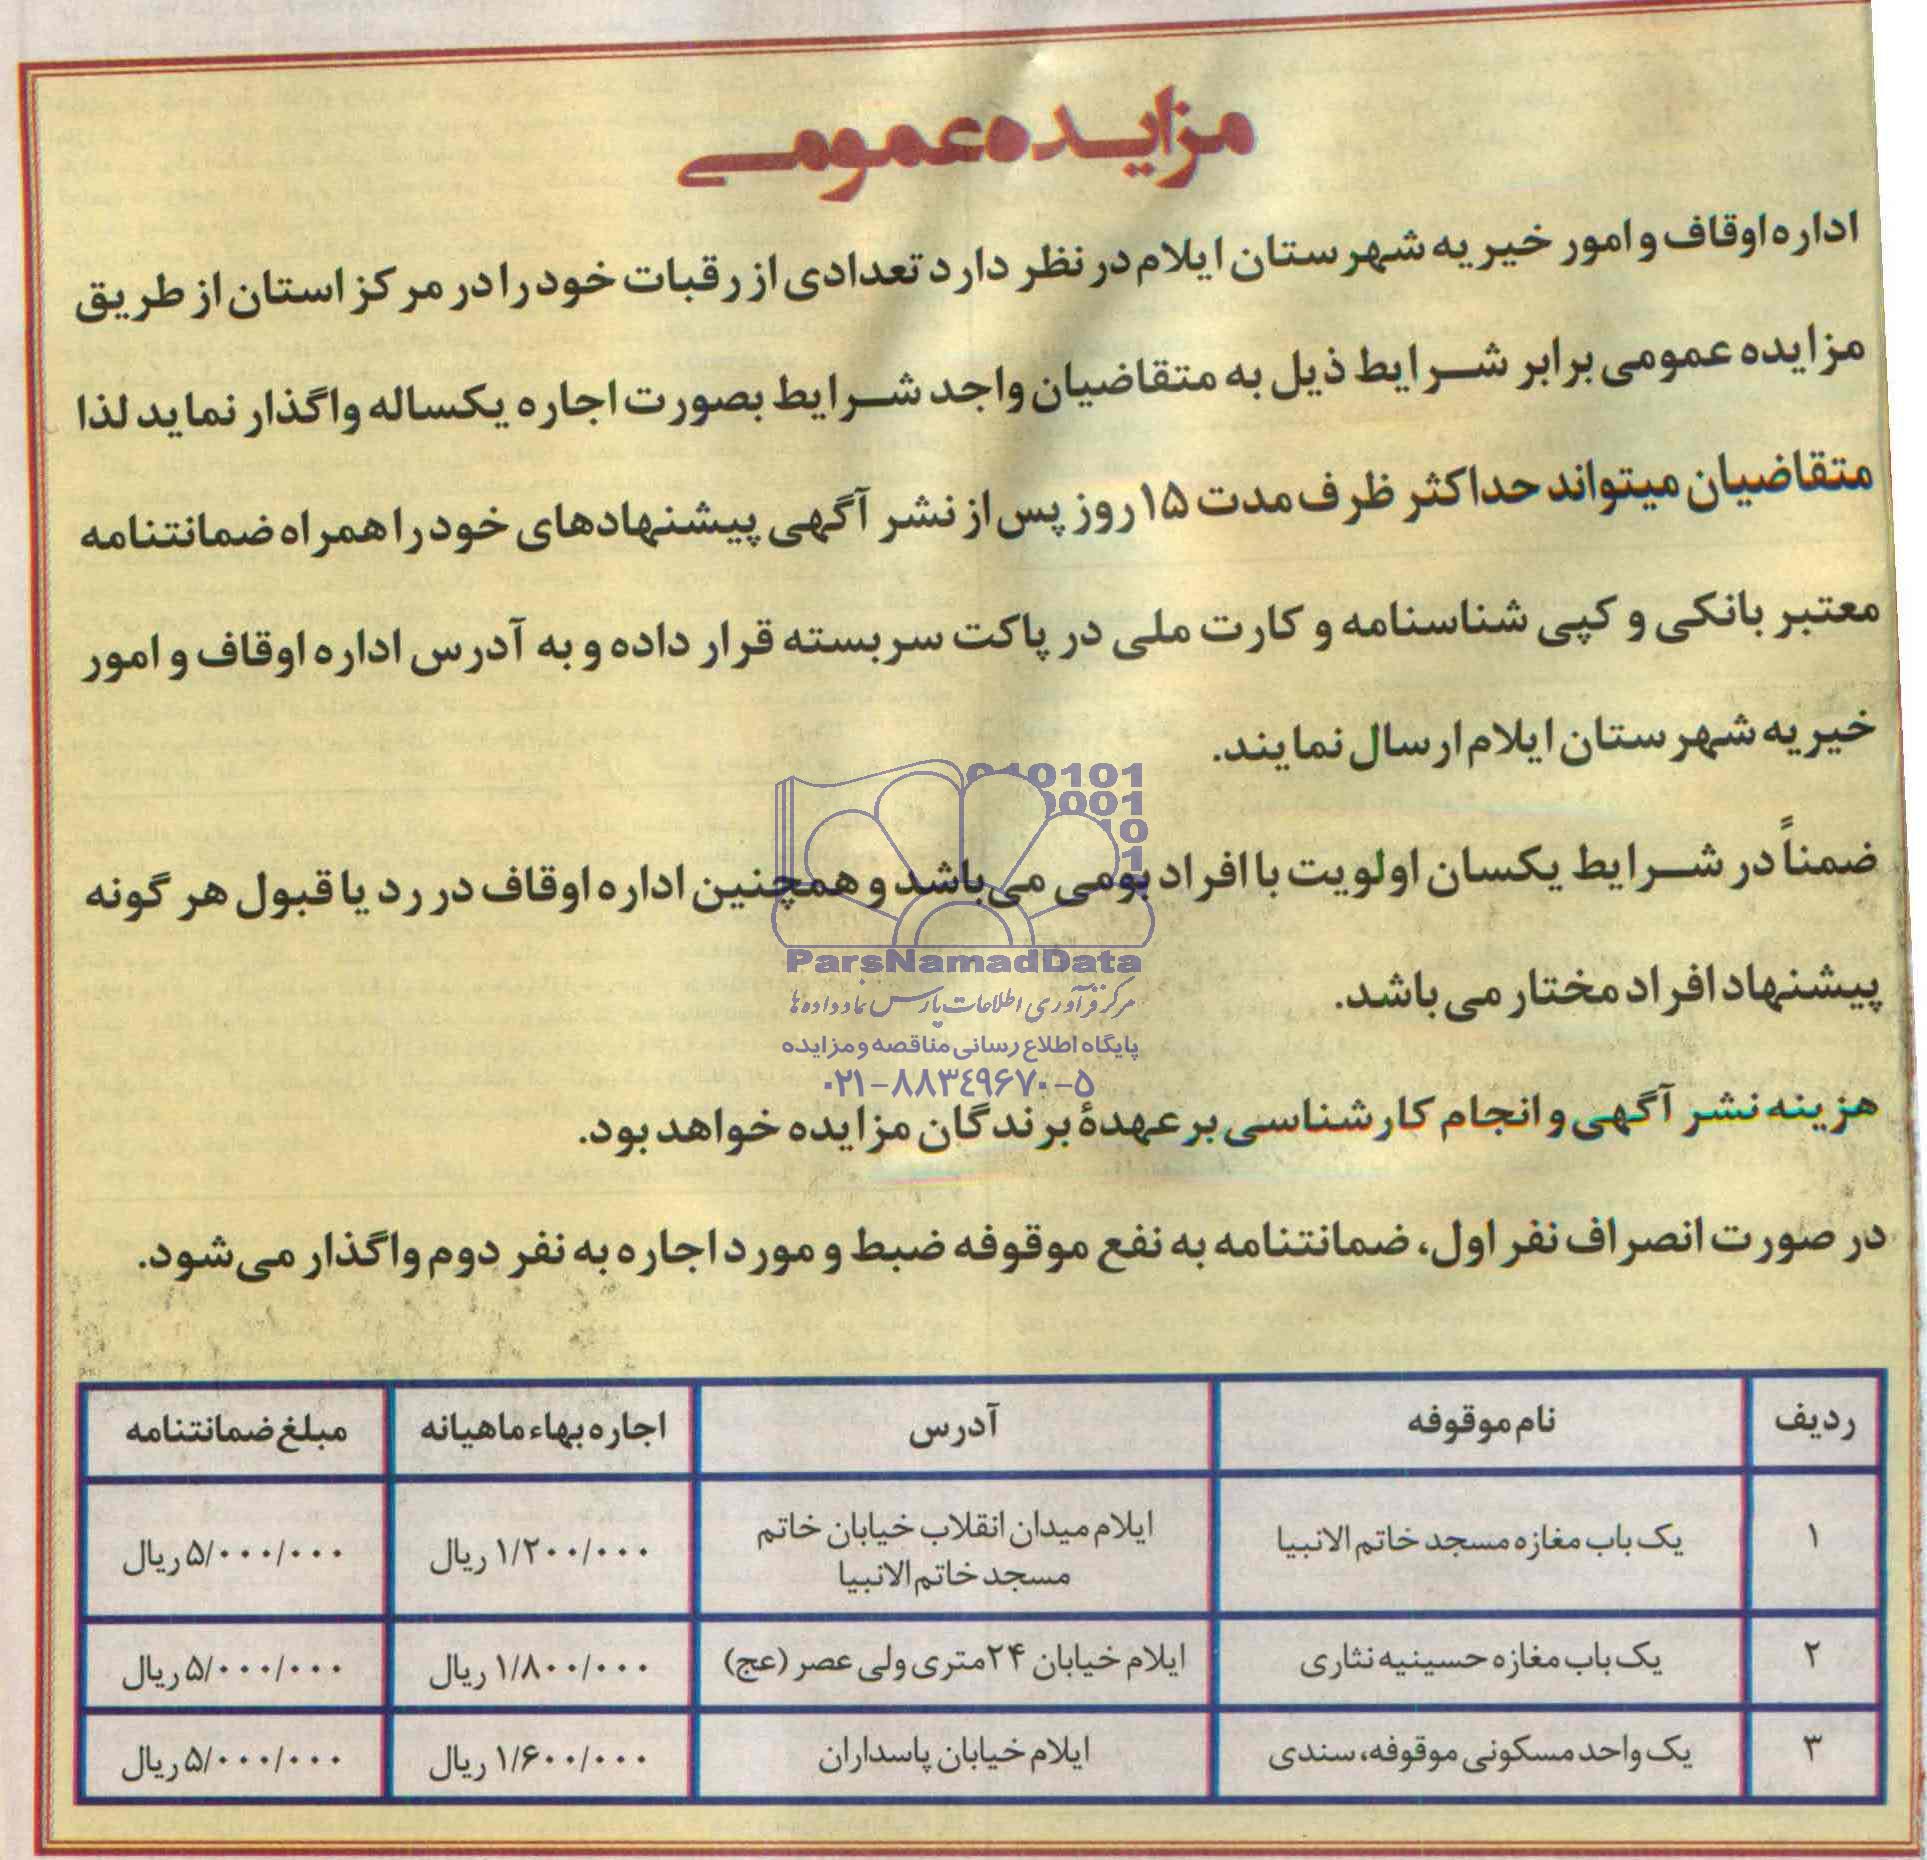 مزایده عمومی
اداره اوقاف و امور خیریه شهرستان ایلام در نظر دارد تعدادی از رقبات خود را در مرکز استان از طریق
مزایده عمومی برابر شرایط ذیل به متقاضیان واجد شرایط بصورت اجاره یکساله واگذار نماید لذا
متقاضیان میتواند حداکثر ظرف مدت ۱۵ روز پس از نشر آگهی پیشنهادهای خود را همراه ضمانتنامه
معتبر بانکی و کپی شناسنامه و کارت ملی در پاکت سربسته قرار داده و به آدرس اداره اوقاف و امور
خیریه شهرستان ایلام ارسال نمایند.
010101
0001
10
1
ضمناً در شرایط یکسان اولویت با افراد بومی می‌باشد و همچنین اداره اوقاف در رد یا قبول هر گونه
ParsNamadData
پیشنهاد افراد مختار می باشد.
مرکز فرآوری اطلاعات پارس نماد داده ها
پایگاه اطلاع رسانی مناقصه و مزایده
۰۲۱-۸۸۳۴۹۶۷۰-۵
هزینه نشر آگهی و انجام کارشناسی بر عهدهٔ برندگان مزایده خواهد بود.
در صورت انصراف نفر اول، ضمانتنامه به نفع موقوفه ضبط و مورد اجاره به نفر دوم واگذار می‌شود.
ردیف نام موقوفه آدرس اجاره بهاء ماهیانه مبلغ ضمانتنامه
۱ یک باب مغازه مسجد خاتم الانبیا ایلام میدان انقلاب خیابان خاتم مسجد خاتم الانبیا ۱/۲۰۰/۰۰۰ ریال ۵/۰۰۰/۰۰۰ ریال
۲ یک باب مغازه حسینیه نثاری ایلام خیابان ۲۴متری ولی عصر (عج) ۱/۸۰۰/۰۰۰ ریال ۵/۰۰۰/۰۰۰ ریال
۳ یک واحد مسکونی موقوفه، سندی ایلام خیابان پاسداران ۱/۶۰۰/۰۰۰ ریال ۵/۰۰۰/۰۰۰ ریال